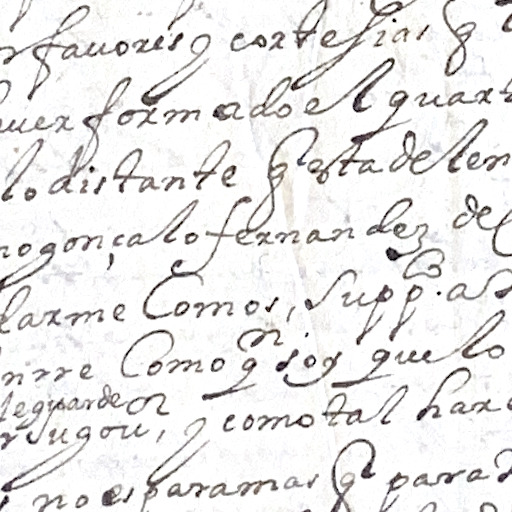 favores y cortesias q
aver formado el quart
lo distante q esta de len
gonçalo fernandez de
darme Como s, supp.co a
Como q.n soy que lo
le guarde
su gov.n, y como tal hare
no es para mas q para